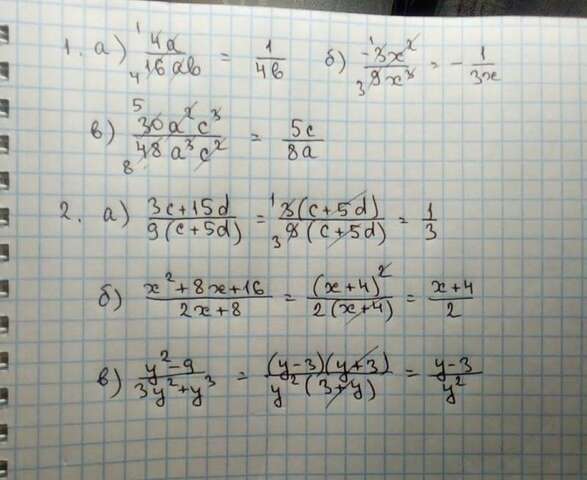 1. а) 4a/16ab = 1/4b б) -3x²/9x³ = -1/3x
в) 30a²c³/48a³c² = 5c/8a
2. а) 3c+15d/9(c+5d) = 3(c+5d)/9(c+5d) = 1/3
б) x²+8x+16/2x+8 = (x+4)²/2(x+4) = x+4/2
в) y²-9/3y²+y³ = (y-3)(y+3)/y²(3+y) = y-3/y²